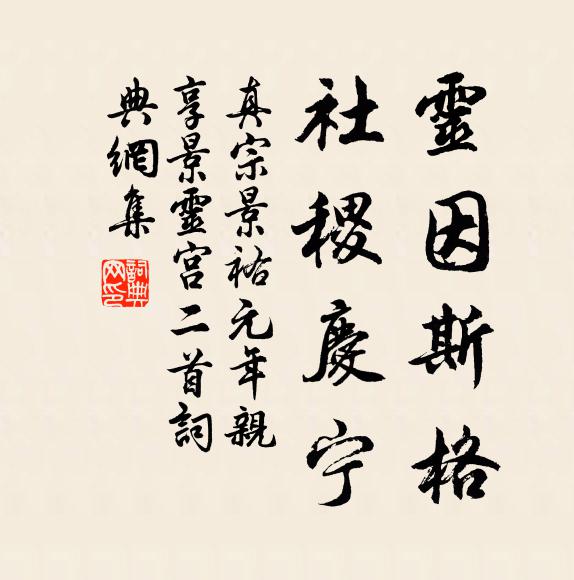 靈因斯格
社稷慶宁
真宗景祐元年親
享景靈宫二首詞
典網集
詞典网印